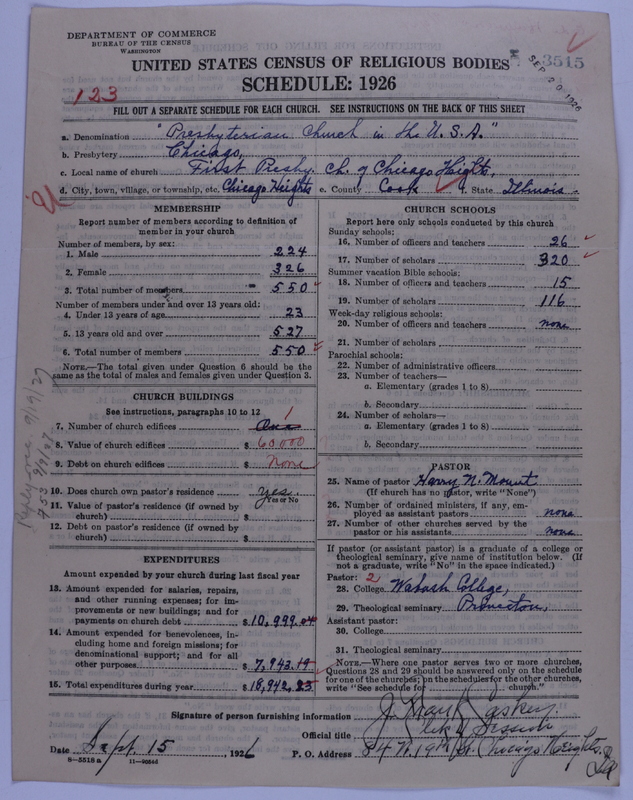 DEPARTMENT OF COMMERCE
BUREAU OF THE CENSUS
WASHINGTON
UNITED STATES CENSUS OF RELIGIOUS BODIES
3515
SEP 20 1926
SCHEDULE: 1926
123
FILL OUT A SEPARATE SCHEDULE FOR EACH CHURCH. SEE INSTRUCTIONS ON THE BACK OF THIS SHEET
a. Denomination "Presbyterian Church in the U.S.A."
b. Presbytery Chicago,
c. Local name of church First Presby. Ch. of Chicago Heights,
d. City, town, village, or township, etc. Chicago Heights e. County Cook f. State Illinois.
MEMBERSHIP
Report number of members according to definition of
member in your church
Number of members, by sex:
1. Male 224
2. Female 326
3. Total number of members 550
Number of members under and over 13 years old:
4. Under 13 years of age 23
5. 13 years old and over 527
6. Total number of members 550
NOTE.—The total given under Question 6 should be
same as the total of males and females given under Question 3.
CHURCH BUILDINGS
See instructions, paragraphs 10 to 12
7. Number of church edifices One 1
8. Value of church edifices $ 60000
9. Debt on church edifices $ None
10. Does church own pastor's residence yes.
Yes or No
11. Value of pastor's residence (if owned by
church) $
12. Debt on pastor's residence (if owned by
church) $
EXPENDITURES
Amount expended by your church during last fiscal year
13. Amount expended for salaries, repairs,
and other running expenses; for im-
provements or new buildings; and for
payments on church debt $ 10,999.04
14. Amount expended for benevolences, in-
cluding home and foreign missions; for
denominational support; and for all
other purposes $ 7,943.19
15. Total expenditures during year $ 18,942.23
CHURCH SCHOOLS
Report here only schools conducted by this church
Sunday schools:
16. Number of officers and teachers 26
17. Number of scholars 320
Summer vacation Bible schools:
18. Number of officers and teachers 15
19. Number of scholars 116
Week-day religious schools:
20. Number of officers and teachers none
21. Number of scholars
Parochial schools:
22. Number of administrative officers
23. Number of teachers—
a. Elementary (grades 1 to 8)
b. Secondary
24. Number of scholars—
a. Elementary (grades 1 to 8)
b. Secondary
PASTOR
25. Name of pastor Harry N. Mount
(If church has no pastor, write "None")
26. Number of ordained ministers, if any, em-
ployed as assistant pastors none
27. Number of other churches served by the
pastor or his assistants none
If pastor (or assistant pastor) is a graduate of a college or
theological seminary, give name of institution below. (If
not a graduate, write "No" in the space indicated.)
Pastor: 2
28. College Wabash College,
29. Theological seminary Princeton,
Assistant pastor:
30. College
31. Theological seminary
NOTE.—Where one pastor serves two or more churches,
Questions 28 and 29 should be answered only on the schedule
for one of the churches; on the schedules for the other churches,
write "See schedule for church."
Signature of person furnishing information J.
Official title Clerk of Session
Date Sept. 15, 1926 P. O. Address 84 W. 19th St. Chicago Heights. Ill
8—5518a 11—9058d
Reply rec. 9/19/27